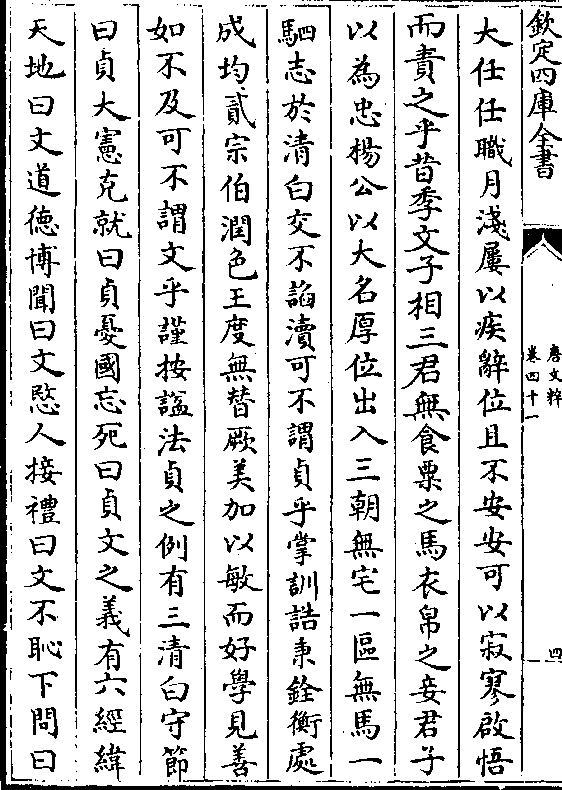 欽定四庫全書
唐文粹
卷四十一
四
大任任職月淺屢以疾辭位且不安安可以寂寥啟悟
而責之乎昔季文子相三君無食粟之馬衣帛之妾君子
以為忠楊公以大名厚位出入三朝無宅一區無馬一
駟志於清白交不謟瀆可不謂貞乎掌訓誥秉銓衡處
成均貳宗伯潤色王度無替厥美加以敏而好學見善
如不及可不謂文乎謹按諡法貞之例有三清白守節
曰貞大憲克就曰貞憂國忘死曰貞文之義有六經緯
天地曰文道徳博聞曰文愍人接禮曰文不恥下問曰